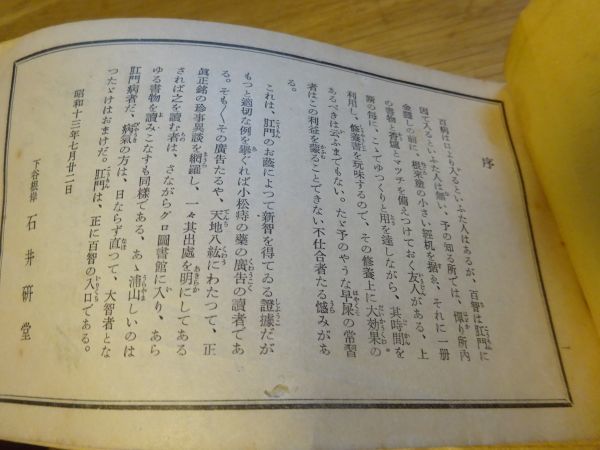 序
百病は口より入るといふた人はあるが、百智は肛門に
因て入るといふた人は無い、予の知る所では、憚り所內
金隱しの前に、根來塗の小さい經机を据ゑ、それに一册
の書物と香爐とマツチを備えつけておく友人がある、上
厠の每に、こゝでゆつくりと用を達しながら、其時間を
利用し、修養書を玩味するので、その修養上に大効果の
あるべきは云ふまでもない。たゞ予のやうな早屎の常習
者はこの利益を蒙ることできない不仕合者たる憾みがあ
る。
これは、肛門のお蔭によつて新智を得てゐる證據だが
もつと適切な例を擧ぐれば小松痔の藥の廣吿の讀者であ
る。そも〱その廣吿たるや、天地八紘にわたつて、正
眞正銘の珍事異談を網羅し、一々其出處を明にしてある
されば之を讀む者は、さながらグロ圖書館に入り、あら
ゆる書物を讀みこなすも同樣である、あゝ浦山しいのは
肛門病者だ、病氣の方は、日ならず直つて、大智者とな
つたゞけはおまけだ。肛門は、正に百智の入口である。
昭和十三年七月廿二日
下谷根岸 石井硏堂